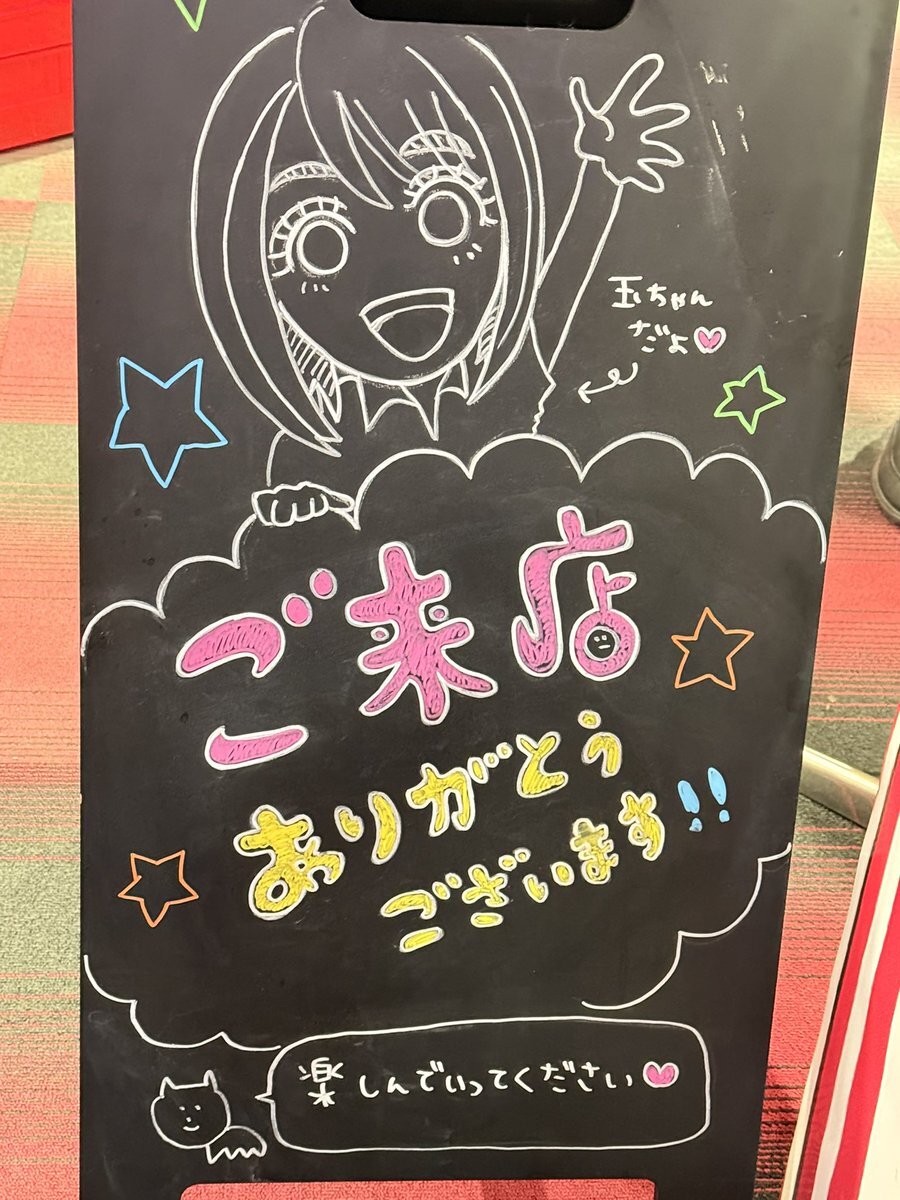 玉ちゃん
だよ♡
ご来店
ありがとう
ございます!!
楽しんでいってください♡